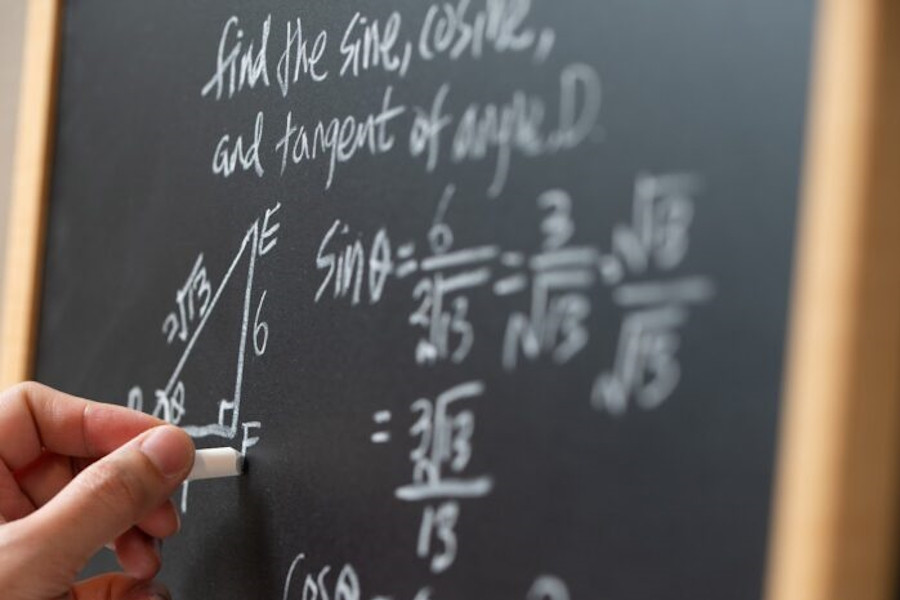 find the sine, cosine,
and tangent of angle D.
E
2√13
6
θ
F
sinθ = 6/2√13 = 3/√13 · √13/√13
= 3√13/13
cosθ =